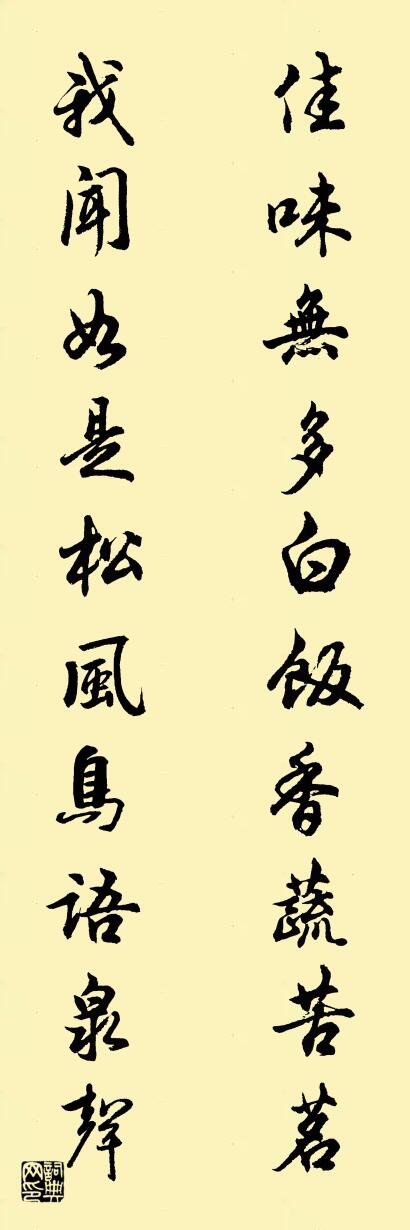 佳味無多白飯香蔬苦茗
我聞如是松風鳥語泉聲
詞典網印